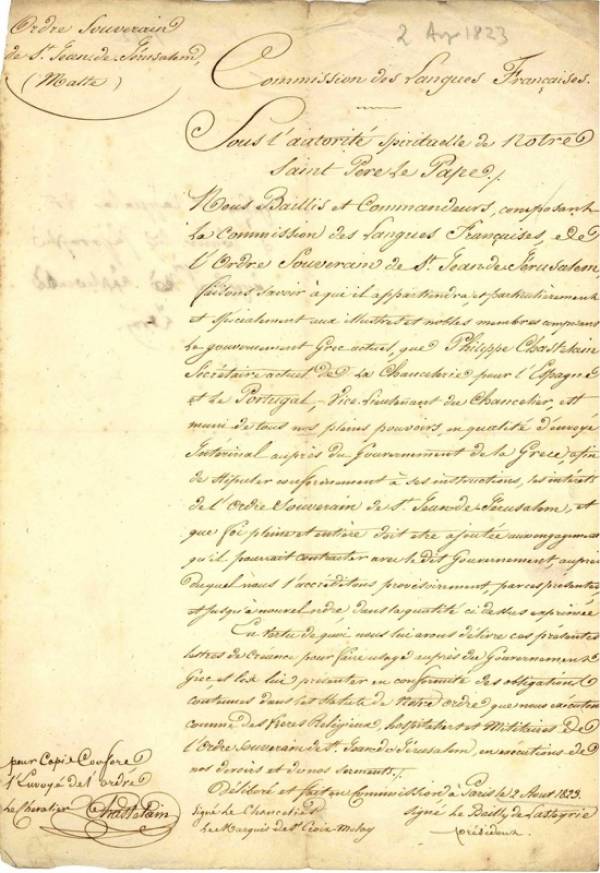 Ordre Souverain
de St. Jean de Jérusalem,
(Malte)
2 Aug 1823
Commission des Langues Françaises.
Sous l'autorité spirituelle de Notre
Saint Père le Pape.
Nous Baillis et Commandeurs, composant
la Commission des Langues Françaises, de
l'Ordre Souverain de St. Jean de Jérusalem,
faisons savoir à qui il appartiendra, et particulièrement
et spécialement aux illustres et nobles membres composant
le gouvernement Grec actuel, que Philippe Chastelain
Secrétaire actuel de la Chancelerie pour l'Espagne
et le Portugal, Vice-Lieutenant du Chancelier, est
muni de tous nos pleins pouvoirs, en qualité d'envoyé
Intérimal auprès du Gouvernement de la Grèce, afin
de stipuler conformément à ses instructions, les intérêts
de l'Ordre Souverain de St. Jean de Jérusalem, et
que foi pleine et entière doit etre ajoutée aux engagemens
qu'il pourrait contracter avec le dit Gouvernement, auprès
duquel nous l'accréditons provisoirement, par ces présentes,
et jusqu'à nouvel ordre, dans la qualité ci dessus exprimée
En vertu de quoi nous lui avons délivré ces présentes
lettres de créance pour faire usage auprès du Gouvernement
Grec et les lui présenter en conformité des obligations
contenues dans les Statuts de Notre Ordre que nous exécutons
comme des Frères Religieux, hospitaliers et Militaires de
l'Ordre Souverain de St. Jean de Jérusalem, en exécutions de
nos devoirs et de nos serments.
Délibéré et fait en Commission à Paris le 2 Aout 1823.
Signé le Chancelier
Le Marquis de Ste Croix Molay
Signé Le Bailly de Lasteyrie
président
pour Copie Conforme
l'Envoyé de l'ordre
Le Chevalier Chastelain